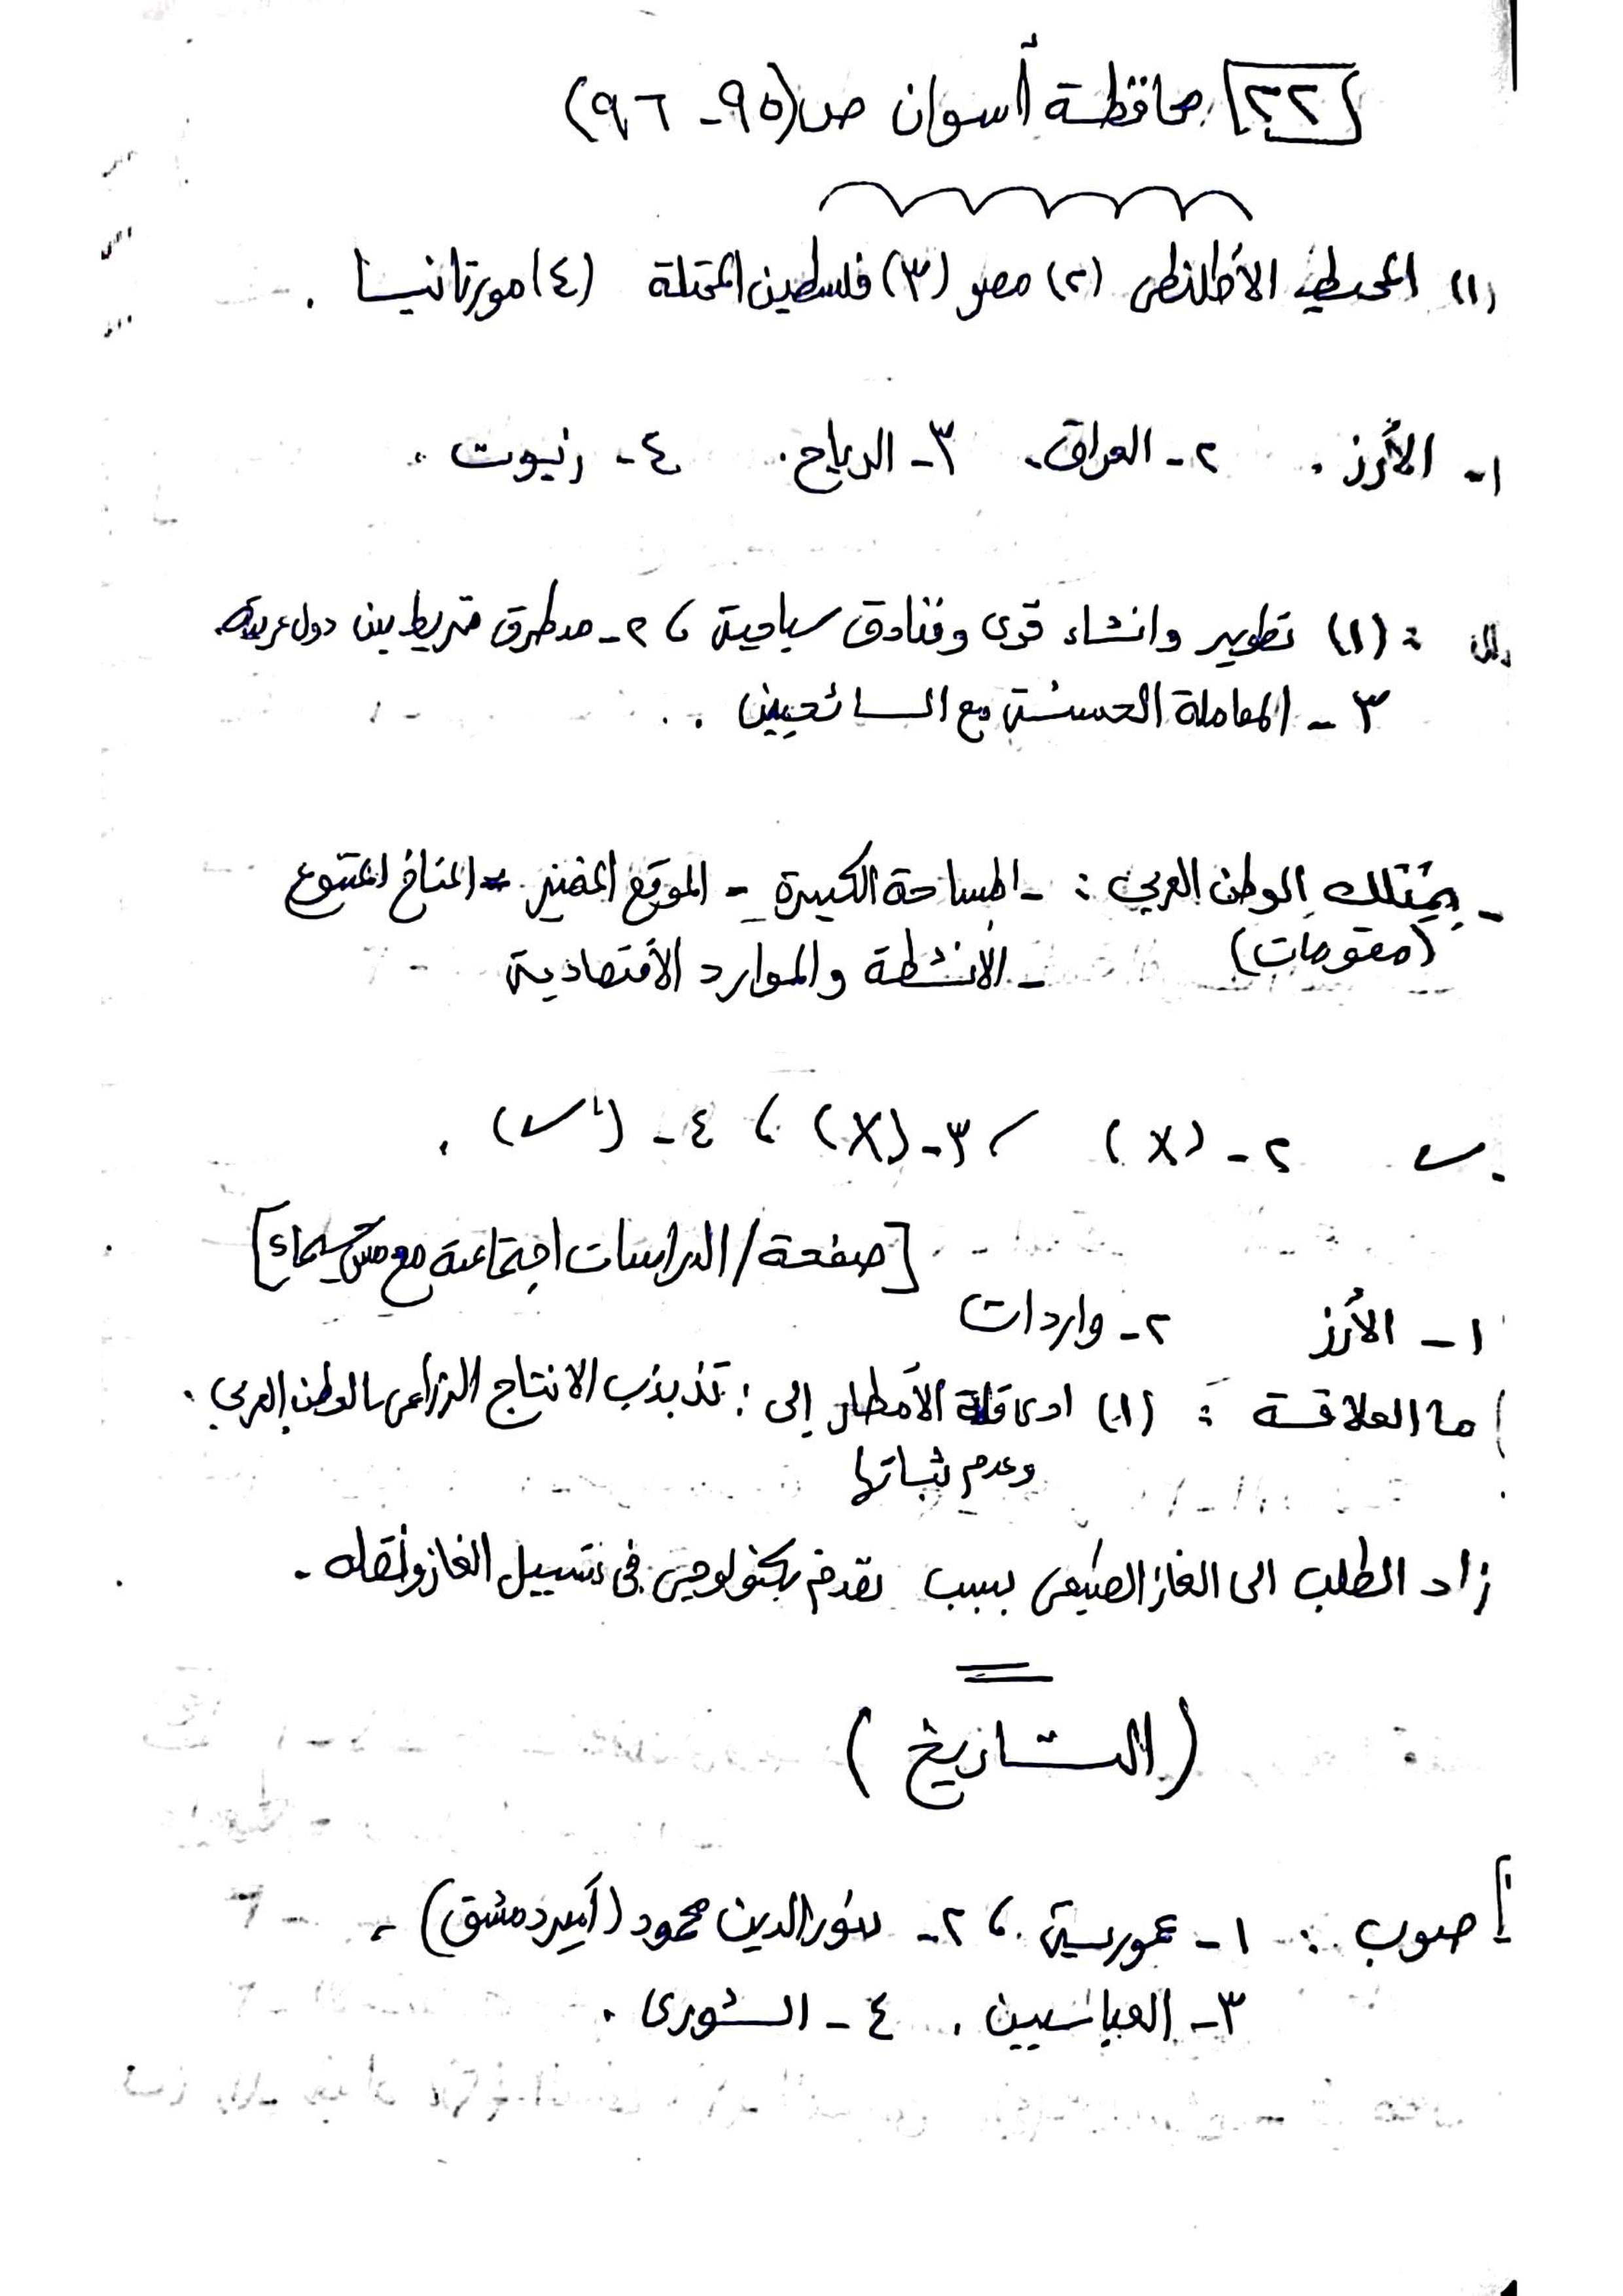 ٢٢ محافظة أسوان ص (٩٥ - ٩٦)
(١) المحيط الأطلنطى (٢) مصر (٣) فلسطين المحتلة (٤) موريتانيا .
١- الأرز . ٢- العراق . ٣- الرياح . ٤- زيوت .
: (١) تطوير وانشاء قرى وفنادق سياحية ، ٢- مد طرق تربط بين دول عربية .
٣ - المعاملة الحسنة مع السائحين . .
- يمتلك الوطن العربي : - المساحة الكبيرة - الموقع المتميز - المناخ المتنوع
(مقومات) - الأنشطة والموارد الأقتصادية
✓ ٢ - (X) ، ٣ - (X) ، ٤ - (✓) .
[صفحة / الدراسات اجتماعية مع مس شيماء]
١ - الأرز ٢ - واردات
) ما العلاقة : (١) ادى قلة الأمطار إلى : تذبذب الانتاج الزراعى بالوطن العربي .
وعدم ثباتها
زاد الطلب الى الغاز الطبيعى بسبب تقدم تكنولوجى فى تسييل الغاز ونقله .
( التاريخ )
أ] صوب : ١ - عمورية ، ٢ - نور الدين محمود (أمير دمشق) ،
٣ - العباسيين . ٤ - الشورى .